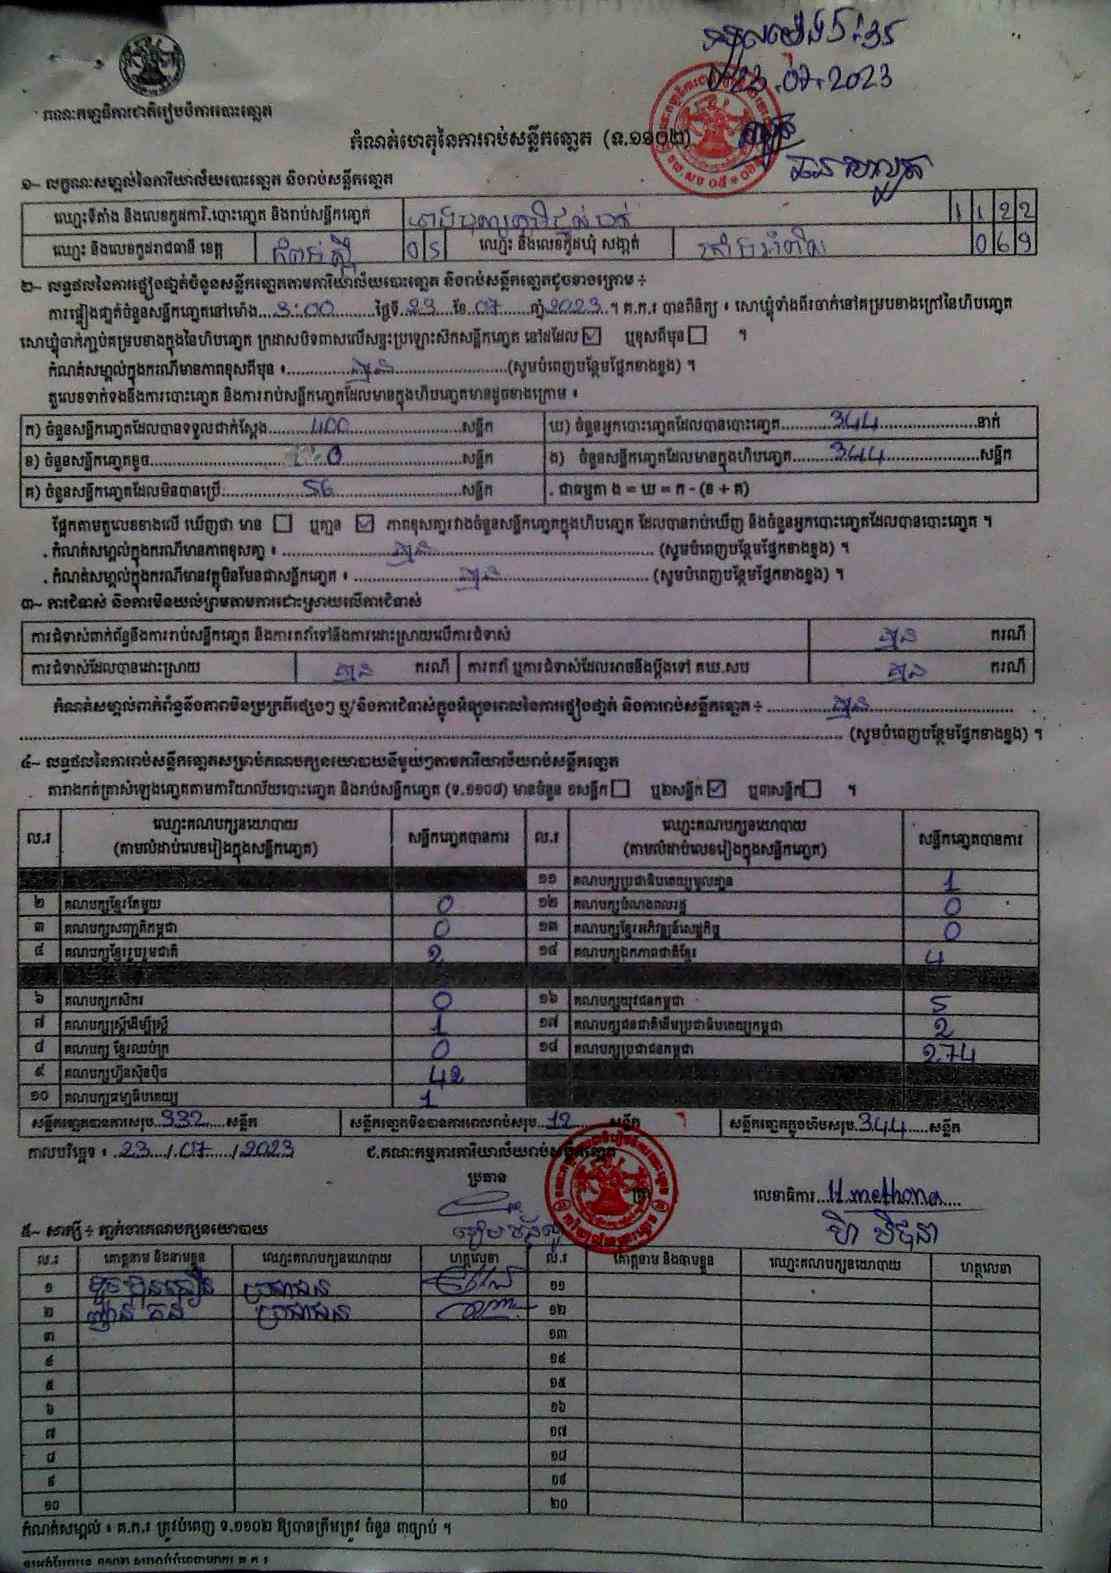 គណៈកម្មាធិការជាតិរៀបចំការបោះឆ្នោត
5:35
23.07.2023
កំណត់ហេតុនៃការរាប់សន្លឹកឆ្នោត (ទ.១១០២)
១~ លក្ខណៈសម្គាល់នៃការិយាល័យបោះឆ្នោត និងរាប់សន្លឹកឆ្នោត
ឈ្មោះទីតាំង និងលេខកូដការិ.បោះឆ្នោត និងរាប់សន្លឹកឆ្នោត 1122
ឈ្មោះ និងលេខកូដរាជធានី ខេត្ត កំពង់ស្ពឺ 05 ឈ្មោះ និងលេខកូដឃុំ សង្កាត់ 069
២~ លទ្ធផលនៃការផ្ទៀងផ្ទាត់ចំនួនសន្លឹកឆ្នោតតាមការិយាល័យបោះឆ្នោត និងរាប់សន្លឹកឆ្នោតដូចខាងក្រោម ÷
ការផ្ទៀងផ្ទាត់ចំនួនសន្លឹកឆ្នោតនៅម៉ោង 3:00 ថ្ងៃទី 23 ខែ 07 ឆ្នាំ 2023 ។ គ.ក.រ បានពិនិត្យ ៖ សោឃ្មុំទាំងពីរចាក់នៅគម្របខាងក្រៅនៃហិបឆ្នោត
សោឃ្មុំចាក់ភ្ជាប់គម្របខាងក្នុងនៃហិបឆ្នោត ក្រដាសបិទពាសលើសន្ទះប្រឡោះស៊កសន្លឹកឆ្នោត នៅដដែល ☑ ឬខុសពីមុន ☐ ។
កំណត់សម្គាល់ក្នុងករណីមានភាពខុសពីមុន ៖ គ្មាន (សូមបំពេញបន្ថែមផ្នែកខាងខ្នង) ។
តួលេខទាក់ទងនឹងការបោះឆ្នោត និងការរាប់សន្លឹកឆ្នោតដែលមានក្នុងហិបឆ្នោតមានដូចខាងក្រោម ៖
ក) ចំនួនសន្លឹកឆ្នោតដែលបានទទួលជាក់ស្តែង 400 សន្លឹក ឃ) ចំនួនអ្នកបោះឆ្នោតដែលបានបោះឆ្នោត 344 នាក់
ខ) ចំនួនសន្លឹកឆ្នោតខូច 0 សន្លឹក ង) ចំនួនសន្លឹកឆ្នោតដែលមានក្នុងហិបឆ្នោត 344 សន្លឹក
គ) ចំនួនសន្លឹកឆ្នោតដែលមិនបានប្រើ 56 សន្លឹក . ជាធម្មតា ង = ឃ = ក - (ខ + គ)
ផ្អែកតាមតួលេខខាងលើ ឃើញថា មាន ☐ ឬគ្មាន ☑ ភាពខុសគ្នារវាងចំនួនសន្លឹកឆ្នោតក្នុងហិបឆ្នោត ដែលបានរាប់ឃើញ និងចំនួនអ្នកបោះឆ្នោតដែលបានបោះឆ្នោត ។
. កំណត់សម្គាល់ក្នុងករណីមានភាពខុសគ្នា ៖ គ្មាន (សូមបំពេញបន្ថែមផ្នែកខាងខ្នង) ។
. កំណត់សម្គាល់ក្នុងករណីមានវត្ថុមិនមែនជាសន្លឹកឆ្នោត ៖ គ្មាន (សូមបំពេញបន្ថែមផ្នែកខាងខ្នង) ។
៣~ ការជំទាស់ និងការមិនយល់ព្រមតាមការដោះស្រាយលើការជំទាស់
ការជំទាស់ពាក់ព័ន្ធនឹងការរាប់សន្លឹកឆ្នោត និងការតវ៉ាទៅនឹងការដោះស្រាយលើការជំទាស់ គ្មាន ករណី
ការជំទាស់ដែលបានដោះស្រាយ គ្មាន ករណី ការតវ៉ា ឬការជំទាស់ដែលអាចនឹងប្តឹងទៅ គឃ.សប គ្មាន ករណី
កំណត់សម្គាល់ពាក់ព័ន្ធនឹងភាពមិនប្រក្រតីផ្សេងៗ ឬ/និងការជំទាស់ក្នុងអំឡុងពេលនៃការផ្ទៀងផ្ទាត់ និងការរាប់សន្លឹកឆ្នោត ÷ គ្មាន
(សូមបំពេញបន្ថែមផ្នែកខាងខ្នង) ។
៤~ លទ្ធផលនៃការរាប់សន្លឹកឆ្នោតសម្រាប់គណបក្សនយោបាយនីមួយៗតាមការិយាល័យរាប់សន្លឹកឆ្នោត
តារាងកត់ត្រាសំឡេងឆ្នោតតាមការិយាល័យបោះឆ្នោត និងរាប់សន្លឹកឆ្នោត (ទ.១១០៨) មានចំនួន ១សន្លឹក ☐ ឬ២សន្លឹក ☑ ឬ៣សន្លឹក ☐ ។
ល.រ ឈ្មោះគណបក្សនយោបាយ (តាមលំដាប់លេខរៀងក្នុងសន្លឹកឆ្នោត) សន្លឹកឆ្នោតបានការ ល.រ ឈ្មោះគណបក្សនយោបាយ (តាមលំដាប់លេខរៀងក្នុងសន្លឹកឆ្នោត) សន្លឹកឆ្នោតបានការ
១១ គណបក្សប្រជាធិបតេយ្យមូលដ្ឋាន 1
២ គណបក្សខ្មែរតែមួយ 0 ១២ គណបក្សបំណងពលរដ្ឋ 0
៣ គណបក្សសញ្ជាតិកម្ពុជា 0 ១៣ គណបក្សខ្មែរអភិវឌ្ឍន៍សេដ្ឋកិច្ច 0
៤ គណបក្សខ្មែររួបរួមជាតិ 2 ១៤ គណបក្សឯកភាពជាតិខ្មែរ 4
៦ គណបក្សកសិករ 0 ១៦ គណបក្សយុវជនកម្ពុជា 5
៧ គណបក្សស្រ្តីដើម្បីស្រ្តី 1 ១៧ គណបក្សជនជាតិដើមប្រជាធិបតេយ្យកម្ពុជា 2
៨ គណបក្ស ខ្មែរឈប់ក្រ 0 ១៨ គណបក្សប្រជាជនកម្ពុជា 274
៩ គណបក្សហ៊្វុនស៊ិនប៉ិច 42
១០ គណបក្សធម្មាធិបតេយ្យ 1
សន្លឹកឆ្នោតបានការសរុប 332 សន្លឹក សន្លឹកឆ្នោតមិនបានការពេលរាប់សរុប 12 សន្លឹក សន្លឹកឆ្នោតក្នុងហិបសរុប 344 សន្លឹក
កាលបរិច្ឆេទ ៖ 23/07/2023 ជ.គណៈកម្មការការិយាល័យរាប់សន្លឹកឆ្នោត
ប្រធាន លេខាធិការ H.methona
៥~ សាក្សី ÷ ភ្នាក់ងារគណបក្សនយោបាយ
ល.រ គោត្តនាម និងនាមខ្លួន ឈ្មោះគណបក្សនយោបាយ ហត្ថលេខា ល.រ គោត្តនាម និងនាមខ្លួន ឈ្មោះគណបក្សនយោបាយ ហត្ថលេខា
១ ប្រជាជន ១១
២ ប្រជាជន ១២
៣ ១៣
៤ ១៤
៥ ១៥
៦ ១៦
៧ ១៧
៨ ១៨
៩ ១៩
១០ ២០
កំណត់សម្គាល់ ៖ គ.ក.រ ត្រូវបំពេញ ទ.១១០២ ឱ្យបានត្រឹមត្រូវ ចំនួន ៣ច្បាប់ ។